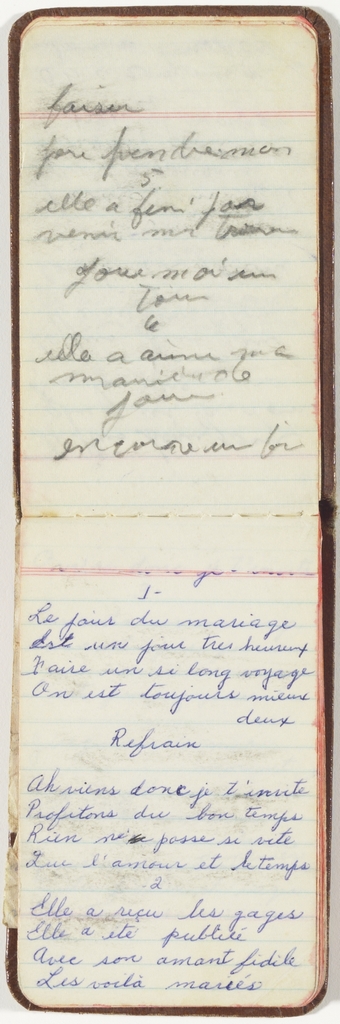 faiser
pour pendre mon
5
elle a fini par
venir me
joue moi un
Tour
6
elle a aimé ma
manière de
jouer
encore un
1-
Le jour du mariage
Est un jour tres heureux
Faire un si long voyage
On est toujours mieux
deux
Refrain
Ah viens donc je t'invite
Profitons du bon temps
Rien ne passe si vite
Que l'amour et le temps
2
Elle a reçu les gages
Elle a été publiée
Avec son amant fidile
Les voilà mariés